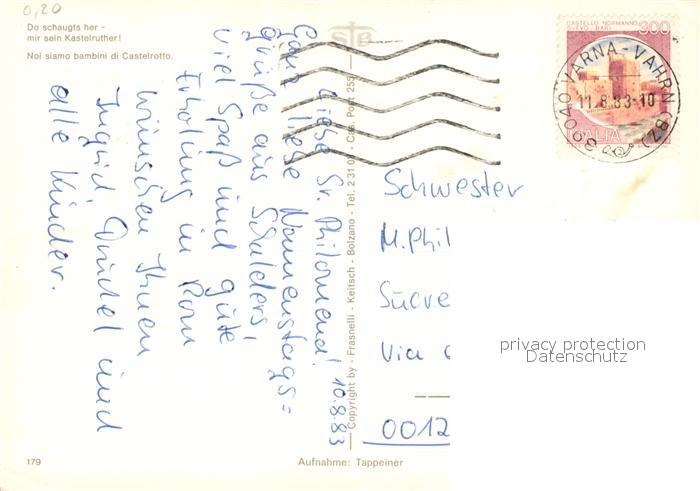 0,20
Do schaugts her -
mir sein Kastelruther!
Noi siamo bambini di Castelrotto.
STB
CASTELLO NORMANNO
SVEVO - BARI
300
ITALIA
39040 VARNA - VAHRN (BZ)
11.8.83-10
10.8.83
Liebe Sr. Philomena!
Ganz liebe Namenstags=
grüße aus Schalders,
viel Spaß und gute
Erholung in Rom
wünschen Ihnen
Ingrid und
alle Kinder.
Copyright by - Frasnelli - Keitsch - Bolzano - Tel. 2 31 0 - Cas. Post. 255
Schwester
M. Phil
Sucre
Via
0012
privacy protection
Datenschutz
179
Aufnahme: Tappeiner